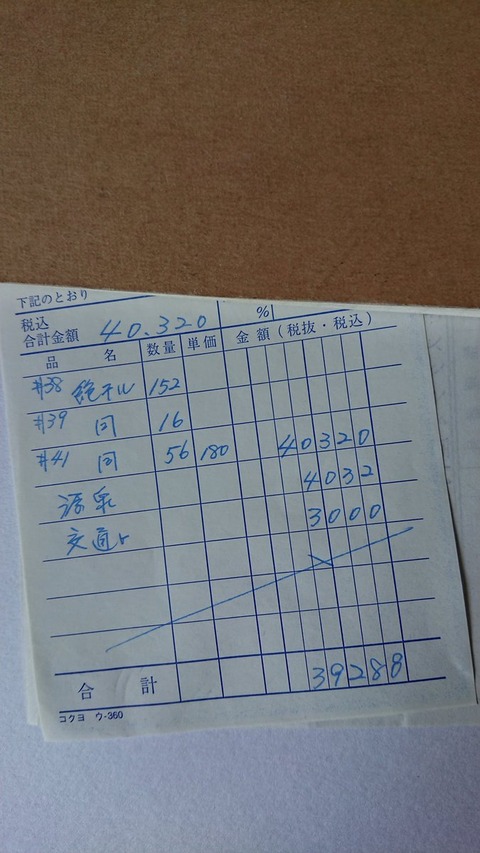 下記のとおり
税込 合計金額 40.320 %
品 名 数量 単価 金額(税抜・税込)
#38 絵テル 152
#39 同 16
#41 同 56 180 40320
源泉 4032
交通ヒ 3000
合 計 39288
コクヨ ウ-360